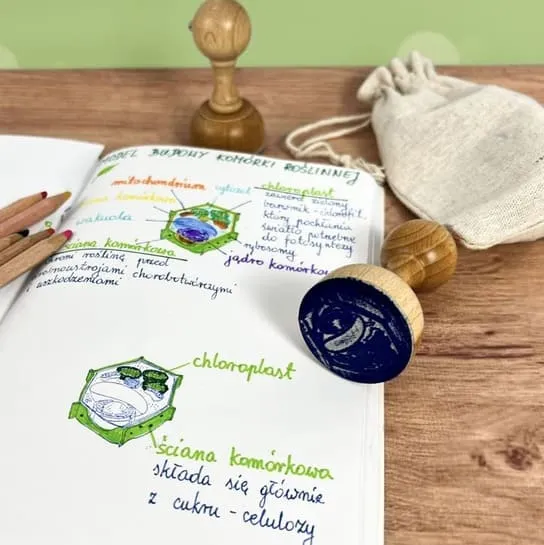 MODEL BUDOWY KOMÓRKI ROŚLINNEJ
mitochondrium
cytozol
chloroplast
zawiera zielony
barwnik - chlorofil,
który pochłania
światło potrzebne
do fotosyntezy
komórkowa
wakuola
rybosomy
jądro komórkowe
ściana komórkowa
chroni roślinę przed
drobnoustrojami chorobotwórczymi
i uszkodzeniami
chloroplast
ściana komórkowa
składa się głównie
z cukru - celulozy